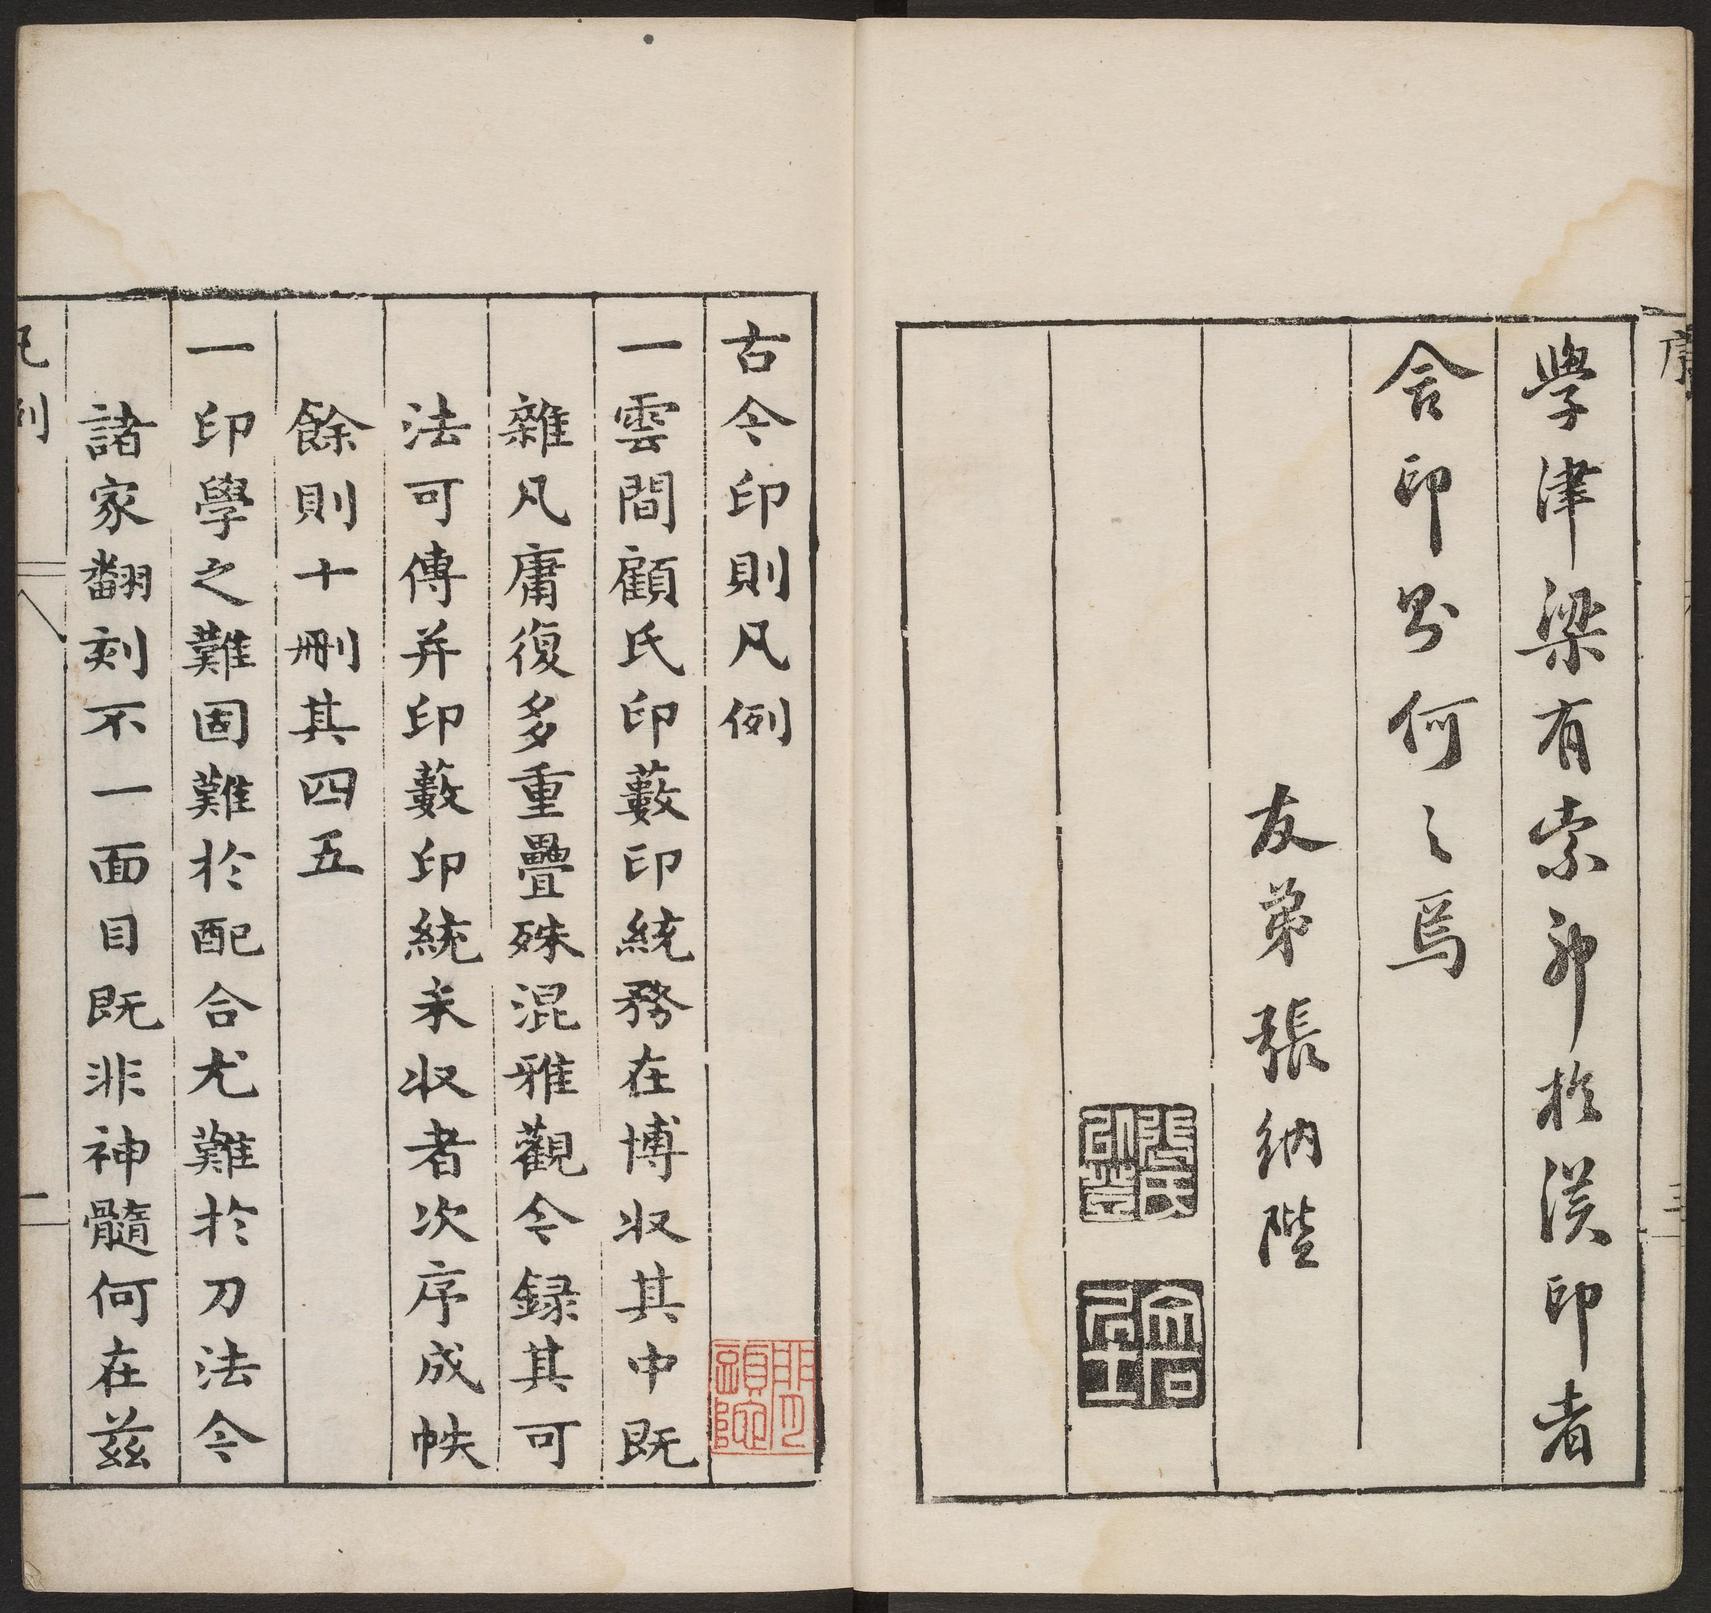 序
三
學津梁有索邪於漢印者
舍印則何之焉
友弟張納陛
古今印則凡例
一雲間顧氏印藪印統務在博收其中既
雜凡庸復多重疊殊混雅觀今録其可
法可傳并印藪印統未收者次序成帙
餘則十刪其四五
一印學之難固難於配合尤難於刀法今
諸家翻刻不一面目既非神髓何在茲
凡例
一